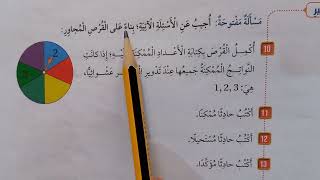 ير
مَسْأَلَةٌ مَفْتوحَةٌ: أُجيبُ عَنِ الْأَسْئِلَةِ الْآتِيَةِ؛ بِناءً عَلى الْقُرْصِ الْمُجاوِرِ:
2
10 أُكْمِلُ الْقُرْصَ بِكِتابَةِ الْأَعْدادِ الْمُمْكِنَةِ؛ إذا كانَتِ
النَّواتِجُ الْمُمْكِنَةُ جَميعُها عِنْدَ تَدْويرِ عَشْوائِيًّا،
هِيَ: 1, 2, 3
11 أَكْتُبُ حادِثًا مُمْكِنًا.
12 أَكْتُبُ حادِثًا مُسْتَحيلًا.
13 أَكْتُبُ حادِثًا مُؤَكَّدًا.